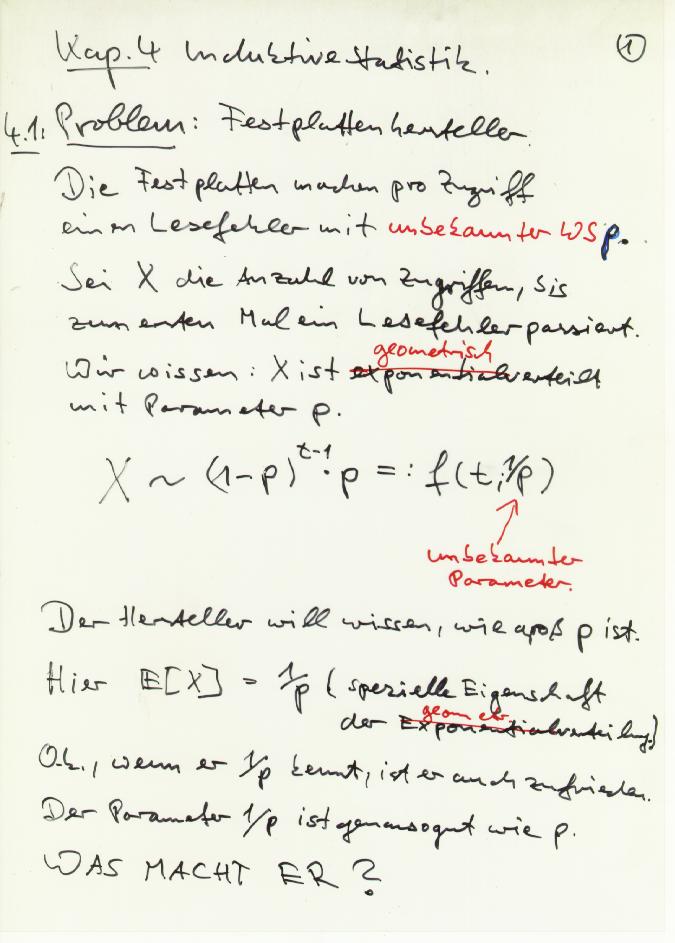 Kap. 4 Induktive Statistik. ①
4.1: Problem: Festplattenhersteller
Die Festplatten machen pro Zugriff
einen Lesefehler mit unbekannter WS p.
Sei X die Anzahl von Zugriffen, bis
zum ersten Mal ein Lesefehler passiert.
geometrisch
Wir wissen: X ist exponentialverteilt
mit Parameter p.
X ~ (1-p)^{t-1} · p =: f(t; 1/p)
unbekannter
Parameter.
Der Hersteller will wissen, wie groß p ist.
Hier E[X] = 1/p (spezielle Eigenschaft
geometr
der Exponentialverteilung)
O.k., wenn er 1/p kennt, ist er auch zufrieden.
Der Parameter 1/p ist genausogut wie p.
WAS MACHT ER?